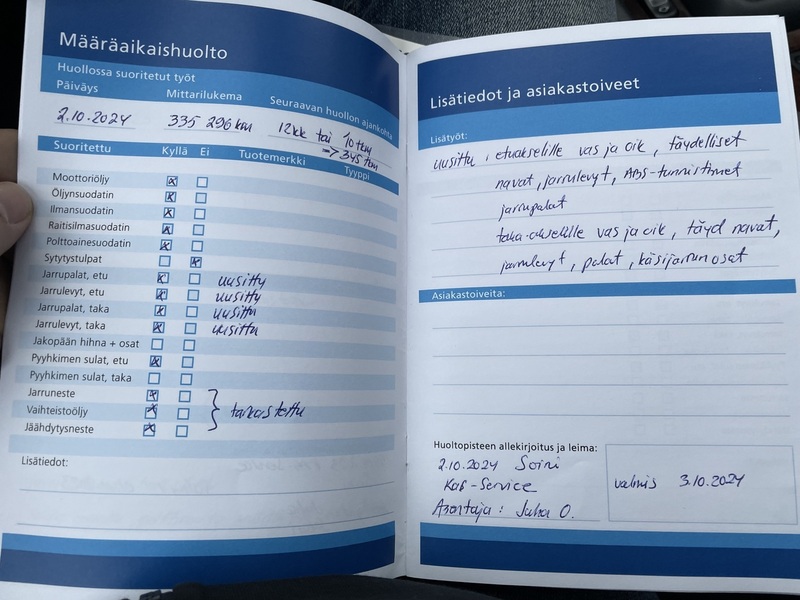 Määräaikaishuolto
Huollossa suoritetut työt
Päiväys Mittarilukema Seuraavan huollon ajankohta
2.10.2024 335 296 km 12kk tai 10 tkm
=> 345 tkm
Suoritettu Kyllä Ei Tuotemerkki Tyyppi
Moottoriöljy x
Öljynsuodatin x
Ilmansuodatin x
Raitisilmasuodatin x
Polttoainesuodatin x
Sytytystulpat x
Jarrupalat, etu x uusittu
Jarrulevyt, etu x uusittu
Jarrupalat, taka x uusittu
Jarrulevyt, taka x uusittu
Jakopään hihna + osat
Pyyhkimen sulat, etu x
Pyyhkimen sulat, taka
Jarruneste x
Vaihteistoöljy x } tarkastettu
Jäähdytysneste x
Lisätiedot:
Lisätiedot ja asiakastoiveet
Lisätyöt:
uusittu : etuakselille vas ja oik, täydelliset
navat, jarrulevyt, ABS-tunnistimet
jarrupalat
taka-akselille vas ja oik, täyd navat,
jarrulevyt, palat, käsijarrun osat
Asiakastoiveita:
Huoltopisteen allekirjoitus ja leima:
2.10.2024 Soini
-Service
Asentaja : Juha O.
valmis 3.10.2024